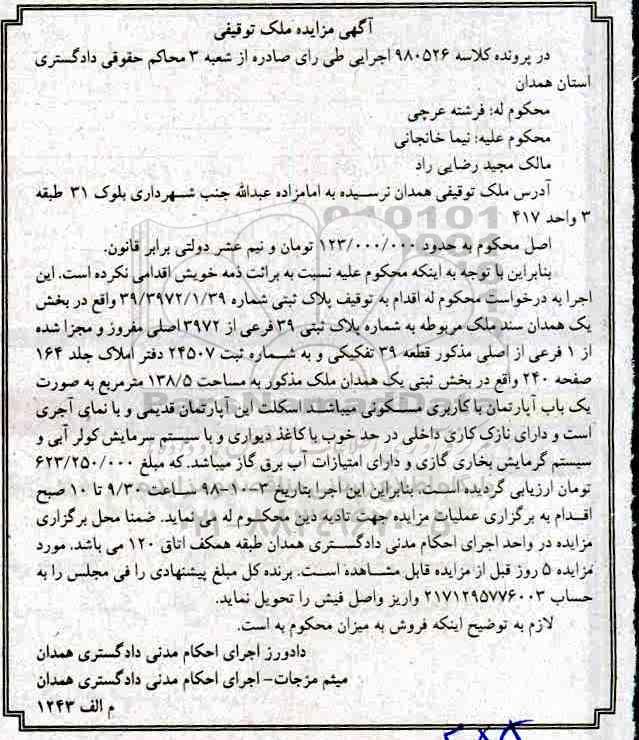 آگهی مزایده ملک توقیفی
در پرونده کلاسه ۹۸۰۵۲۶ اجرایی طی رای صادره از شعبه ۳ محاکم حقوقی دادگستری
استان همدان
محکوم له: فرشته عرچی
محکوم علیه: نیما خانجانی
مالک مجید رضایی راد
آدرس ملک توقیفی همدان نرسیده به امامزاده عبدالله جنب شهرداری بلوک ۳۱ طبقه
۳ واحد ۴۱۷
اصل محکوم به حدود ۱۲۳/۰۰۰/۰۰۰ تومان و نیم عشر دولتی برابر قانون.
بنابراین با توجه به اینکه محکوم علیه نسبت به برائت ذمه خویش اقدامی نکرده است. این
اجرا به درخواست محکوم له اقدام به توقیف پلاک ثبتی شماره ۳۹/۳۹۷۲/۱/۳۹ واقع در بخش
یک همدان سند ملک مربوطه به شماره پلاک ثبتی ۳۹ فرعی از ۳۹۷۲ اصلی مفروز و مجزا شده
از ۱ فرعی از اصلی مذکور قطعه ۳۹ تفکیکی و به شماره ثبت ۲۴۵۰۷ دفتر املاک جلد ۱۶۴
صفحه ۲۴۰ واقع در بخش ثبتی یک همدان ملک مذکور به مساحت ۱۳۸/۵ مترمربع به صورت
یک باب آپارتمان با کاربری مسکونی میباشد اسکلت این آپارتمان قدیمی و با نمای آجری
است و دارای نازک کاری داخلی در حد خوب با کاغذ دیواری و با سیستم سرمایش کولر آبی و
سیستم گرمایش بخاری گازی و دارای امتیازات آب برق گاز میباشد.که مبلغ ۶۲۳/۲۵۰/۰۰۰
تومان ارزیابی گردیده است. بنابراین این اجرا بتاریخ ۳-۱۰-۹۸ ساعت ۹/۳۰ تا ۱۰ صبح
اقدام به برگزاری عملیات مزایده جهت تادیه دین محکوم له می نماید. ضمنا محل برگزاری
مزایده در واحد اجرای احکام مدنی دادگستری همدان طبقه همکف اتاق ۱۲۰ می باشد. مورد
مزایده ۵ روز قبل از مزایده قابل مشاهده است. برنده کل مبلغ پیشنهادی را فی مجلس را به
حساب ۲۱۷۱۲۹۵۷۷۶۰۰۳ واریز واصل فیش را تحویل نماید.
لازم به توضیح اینکه فروش به میزان محکوم به است.
دادورز اجرای احکام مدنی دادگستری همدان
میثم مزجات- اجرای احکام مدنی دادگستری همدان
م الف ۱۲۴۳